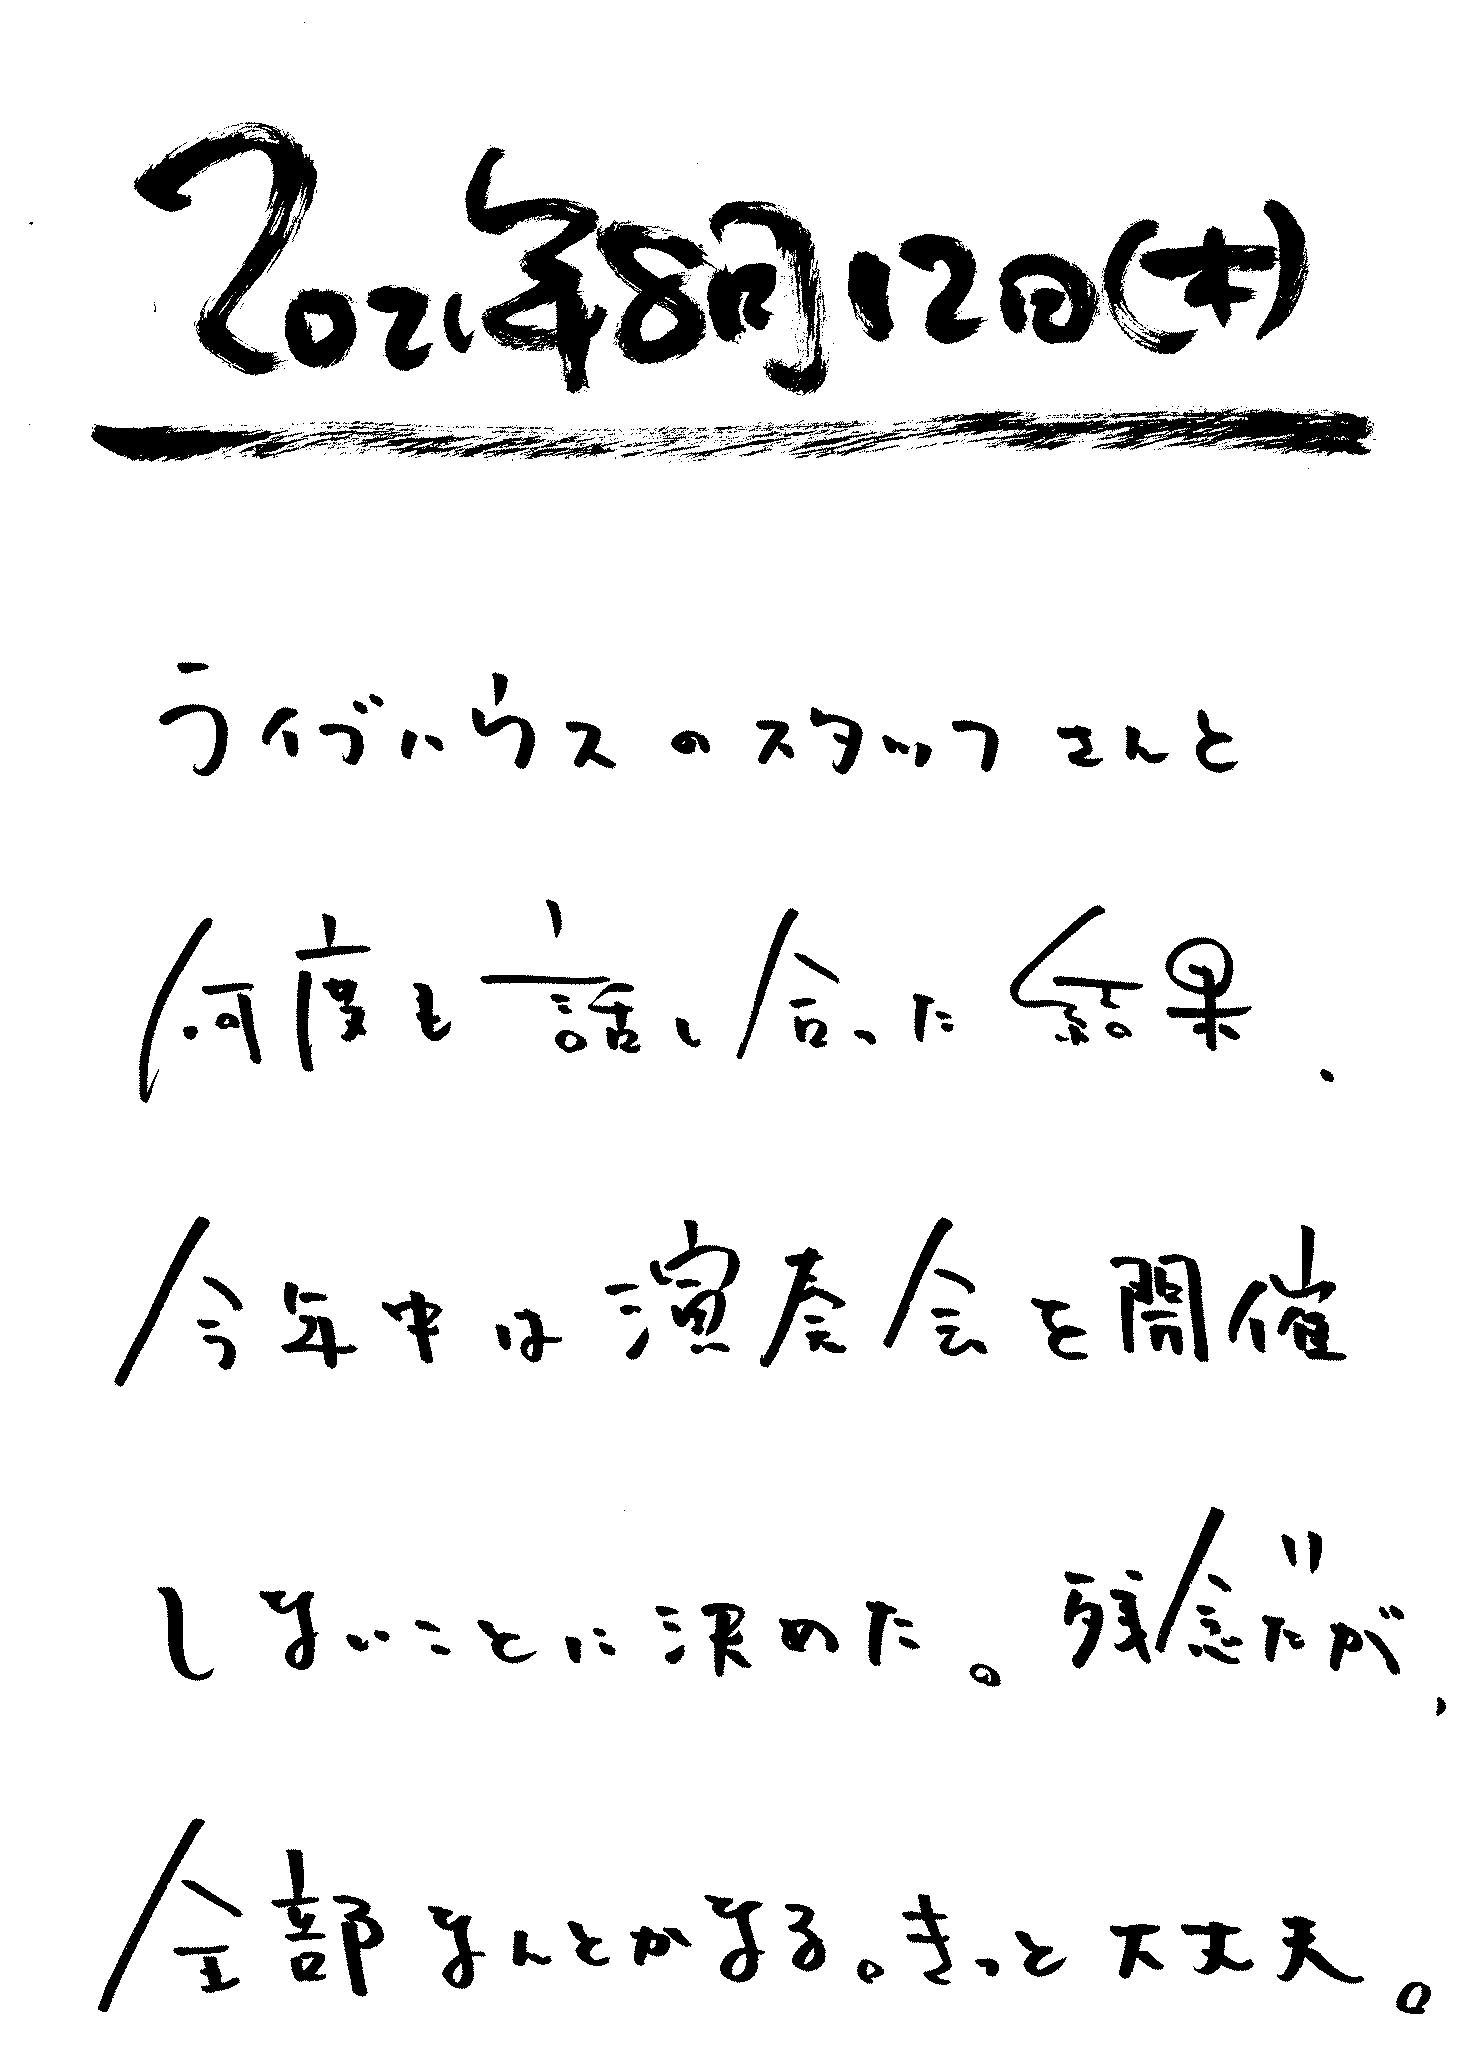 2021年8月12日(木)
ライブハウスのスタッフさんと
何度も話し合った結果、
今年中は演奏会を開催
しないことに決めた。残念だが、
全部なんとかなる。きっと大丈夫。